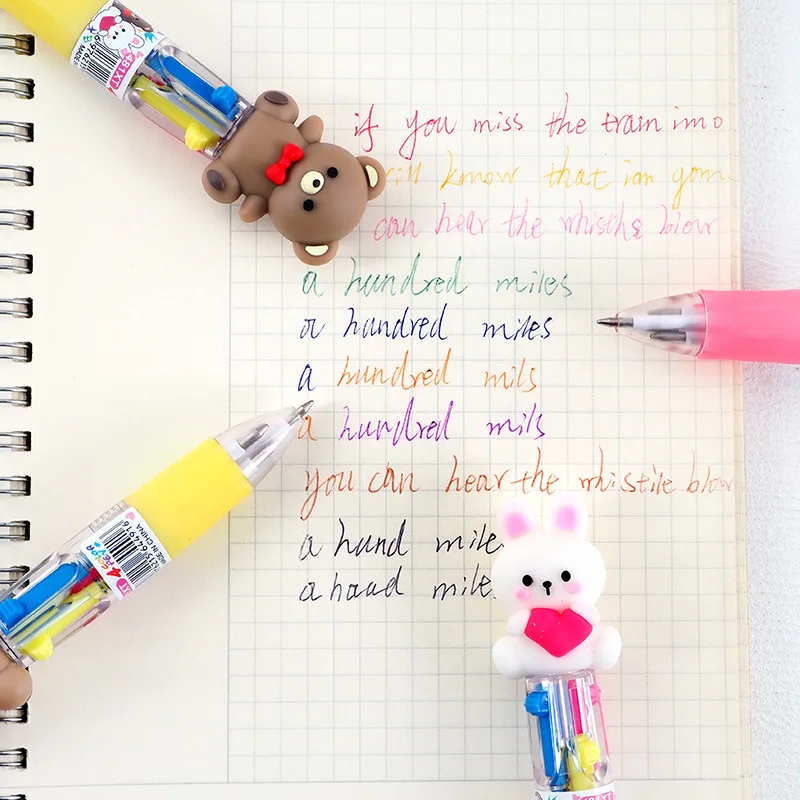 if you miss the train imo
will know that iam gom
can hear the whischs blow
a hundred miles
a hundred miles
a hundred mils
a hundred mils
you can hear the whistile blow
a hund mile
a haad mile
481XT
4 COLOR PEN
MADE IN CHINA